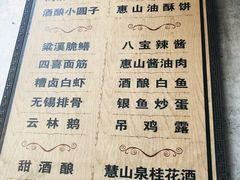 酒酿小圆子 惠山油酥饼
梁溪脆鳝 八宝辣酱
四喜面筋 惠山酱油肉
糟卤白虾 酒酿白鱼
无锡排骨 银鱼炒蛋
云林鹅 吊鸡露
甜酒酿 慧山泉桂花酒